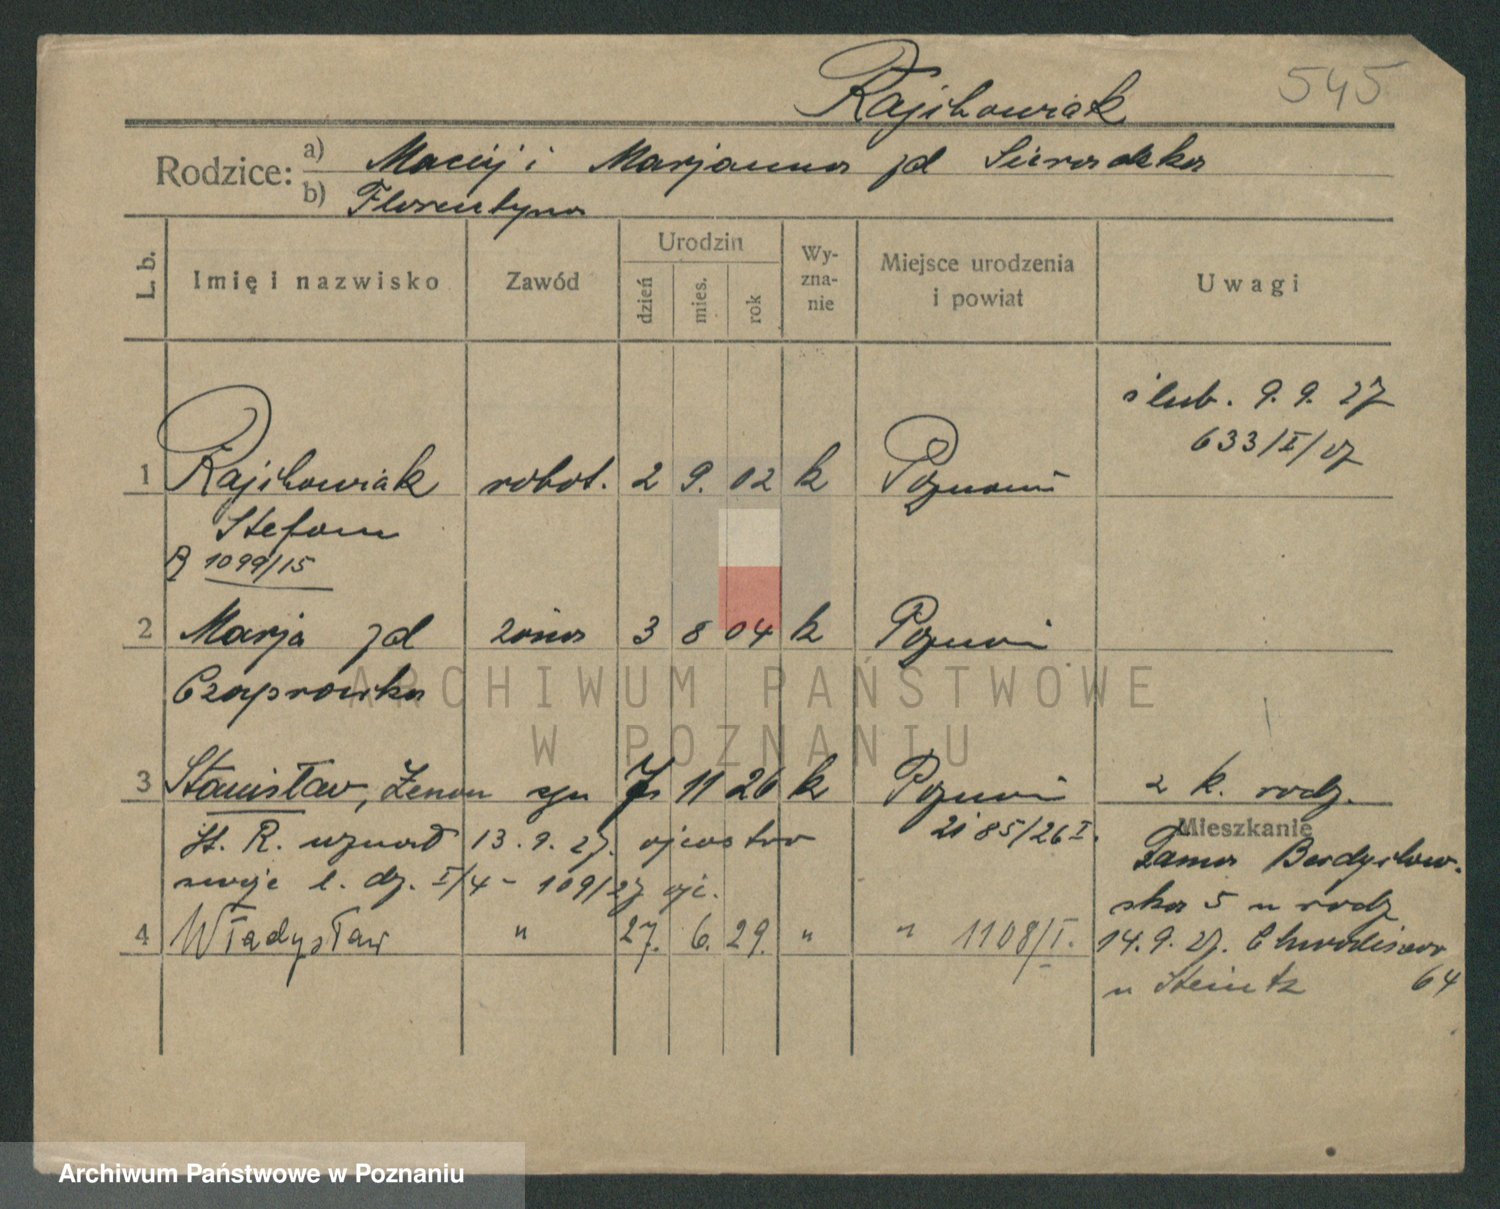 Rajchowiak 545
Rodzice: a) Maciej i Marjanna zd Sieradzka
b) Florentyna
L. b. Imię i nazwisko Zawód Urodzin dzień mies. rok Wy-zna-nie Miejsce urodzenia i powiat Uwagi
ślub. 9. 9. 27
633/I/27
1 Rajchowiak robot. 2 9. 02 k Poznań
Stefan
R 1099/15
2 Marja zd żona 3 8 04 k Poznań
Czaprowska
ARCHIWUM PAŃSTWOWE
W POZNANIU
3 Stanisław, Zenon syn 11 26 k Poznań 2 k. rodz.
2185/26 I.
Mieszkanie
St. R. uznał 13. 9. 27. ojcostwo
swoje l. dz. I/4 - 109/27
ska 5 u rodz
4 Władysław " 27. 6. 29. " " 1108/I. 14. 9. 27.
64
Archiwum Państwowe w Poznaniu